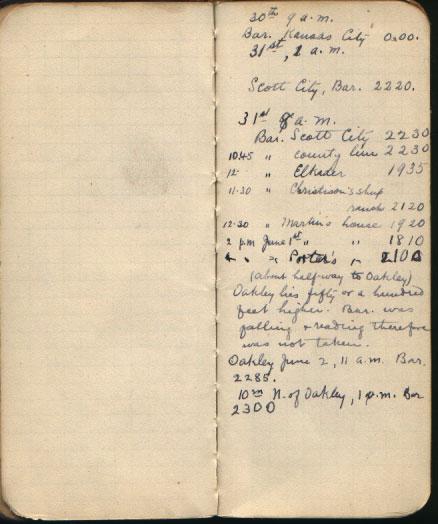 30th 9 a.m.
Bar. Kansas City 000.
31st, 2 a.m.
Scott City, Bar. 2220.
31st 8 a.m.
Bar. Scott City 2230
10.45 " county line 2230
12- " Elkader 1935
11.30 " Christison's shup
ranch 2120
12.30 " Martin's house 1920
2 pm June 1st " " 1810
" " " Porter's " 2100
(about half-way to Oakley)
Oakley lies fifty or a hundred
feet higher. Bar. was
falling & reading therefore
was not taken.
Oakley June 2, 11 a.m. Bar.
2285.
10m N. of Oakley, 1 p.m. Bar
2300